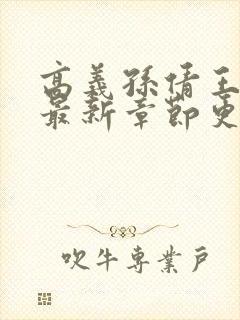 高義孫倩王
最新章節更
吹牛專業戶